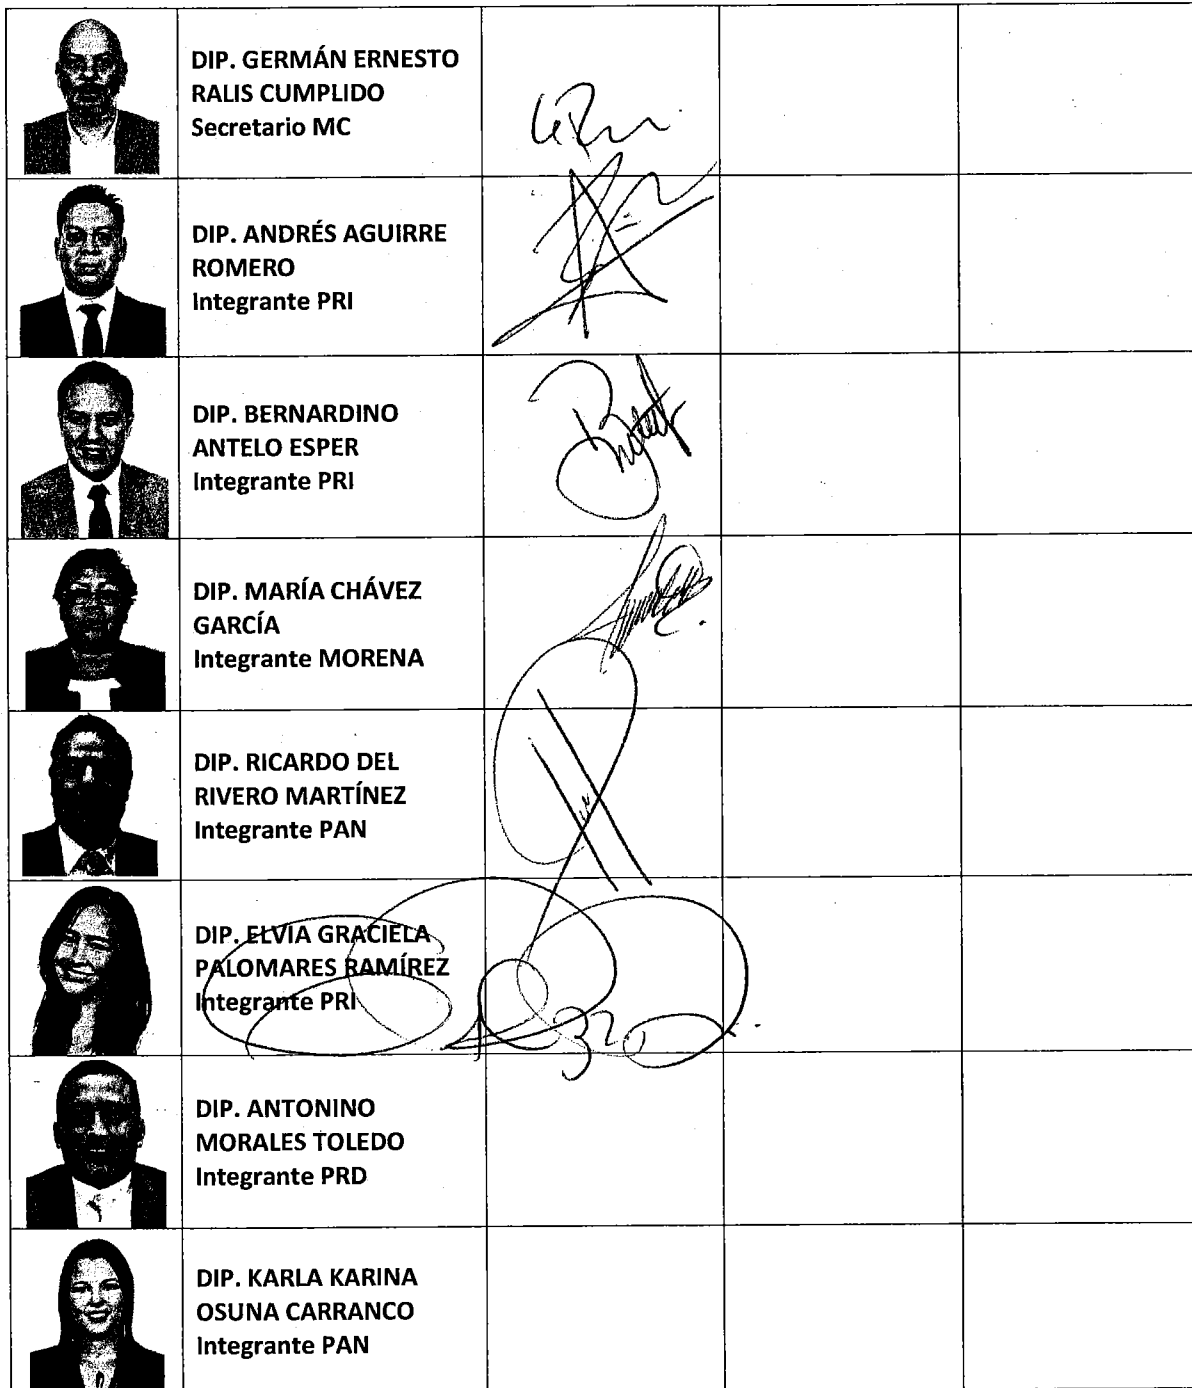 DIP. GERMÁN ERNESTO
RALIS CUMPLIDO
Secretario MC
DIP. ANDRÉS AGUIRRE
ROMERO
Integrante PRI
DIP. BERNARDINO
ANTELO ESPER
Integrante PRI
DIP. MARÍA CHÁVEZ
GARCÍA
Integrante MORENA
DIP. RICARDO DEL
RIVERO MARTÍNEZ
Integrante PAN
DIP. ELVIA GRACIELA
PALOMARES RAMÍREZ
Integrante PRI
DIP. ANTONINO
MORALES TOLEDO
Integrante PRD
DIP. KARLA KARINA
OSUNA CARRANCO
Integrante PAN